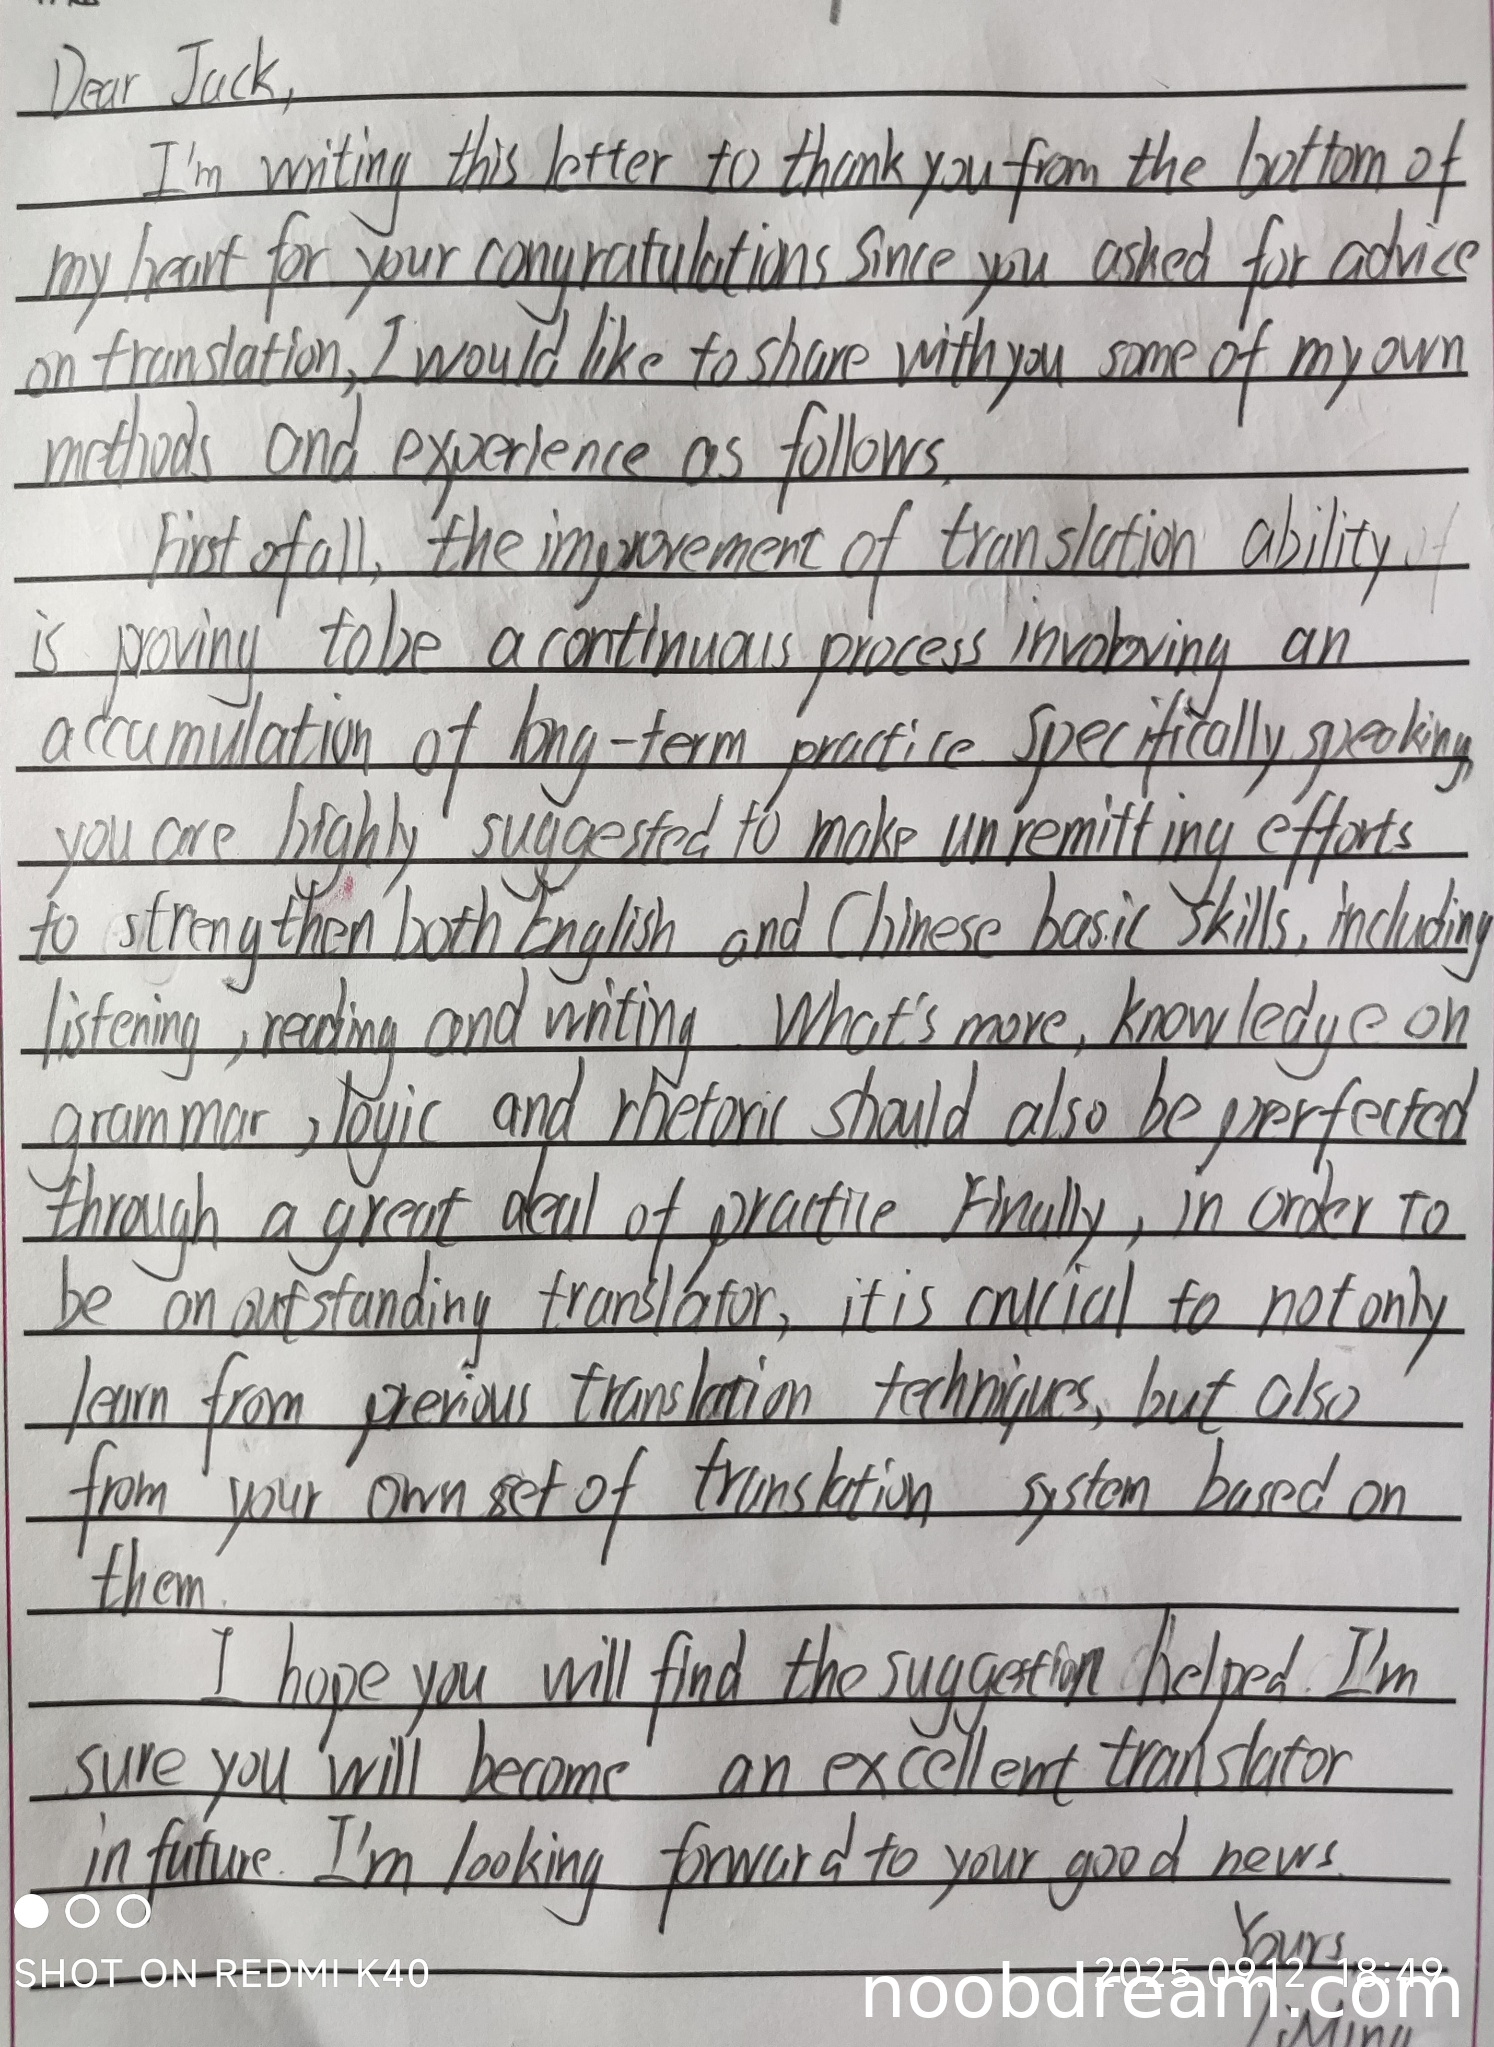 Dear Jack,
I'm writing this letter to thank you from the bottom of
my heart for your congratulations since you asked for advice
on translation, I would like to share with you some of my own
methods and experience as follows.
First of all, the improvement of translation ability
is proving to be a continuous process involving an
accumulation of long-term practice. Specifically speaking,
you are highly suggested to make unremitting efforts
to strengthen both English and Chinese basic skills, including
listening, reading and writing. What's more, knowledge on
grammar, logic and rhetoric should also be perfected
through a great deal of practice Finally, in order to
be an outstanding translator, it is crucial to not only
learn from previous translation techniques, but also
from your own set of translation system based on
them.
I hope you will find the suggestion helped. I'm
sure you will become an excellent translator
in future. I'm looking forward to your good news.
Yours
LiMing
SHOT ON REDMI K40
2025.09.12 18:49
noobdream.com